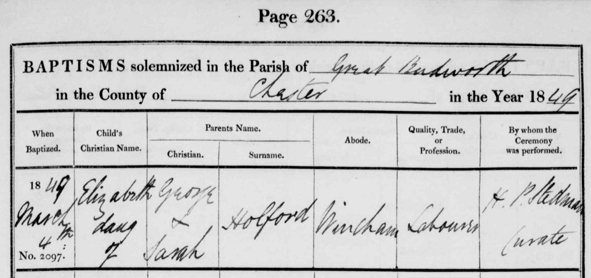 Page 263.
BAPTISMS solemnized in the Parish of Great Budworth
in the County of Chester in the Year 1849
When Baptized. Child's Christian Name. Parents Name. Christian. Surname. Abode. Quality, Trade, or Profession. By whom the Ceremony was performed.
1849 March 4th: No. 2097.
Elizabeth daug of
George & Sarah
Holford
Wincham
Labourer
H. P. Stedman Curate